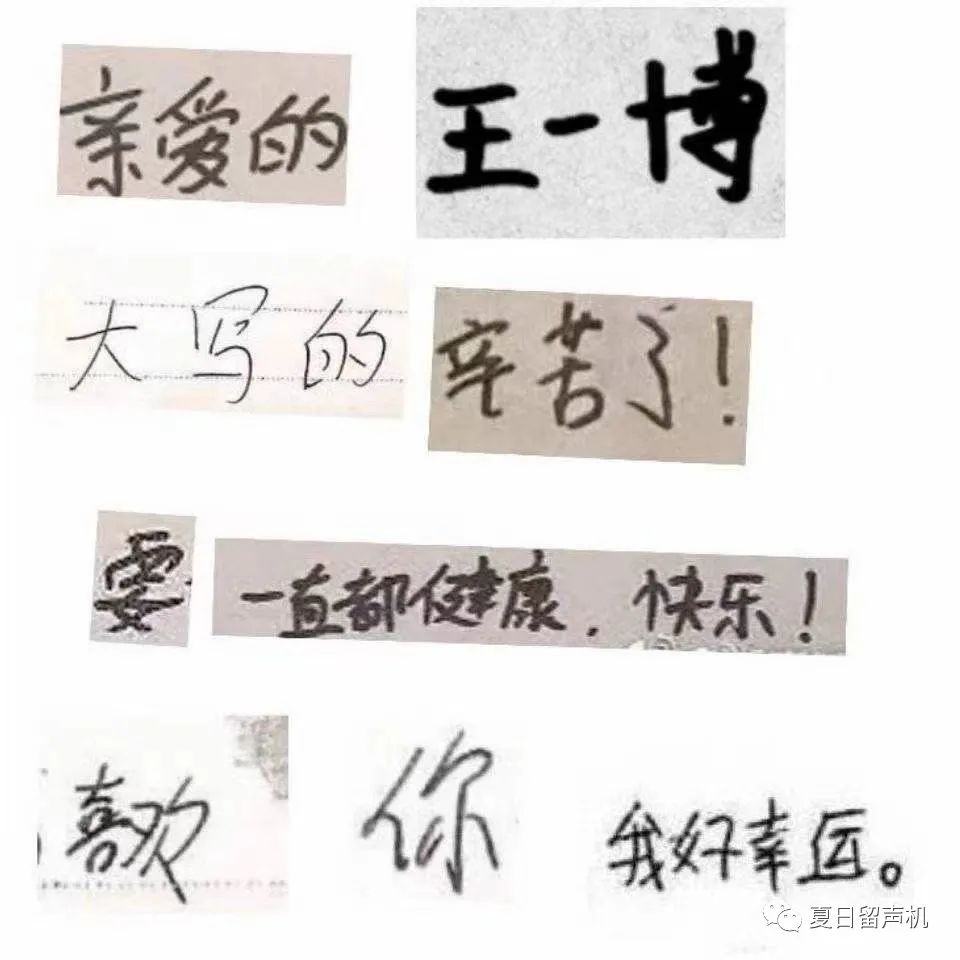 亲爱的 王一博
大写的 辛苦了!
要 一直都健康,快乐!
喜欢 你 我好幸运。
夏日留声机